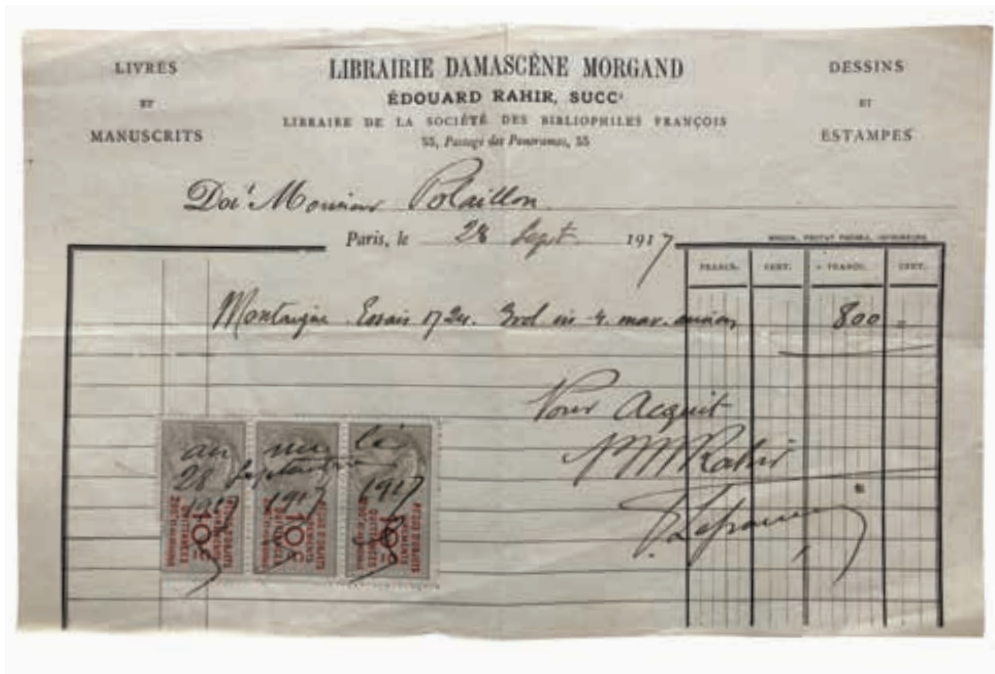 LIVRES
ET
MANUSCRITS
LIBRAIRIE DAMASCÈNE MORGAND
ÉDOUARD RAHIR, SUCCʳ
LIBRAIRE DE LA SOCIÉTÉ DES BIBLIOPHILES FRANÇOIS
55, Passage des Panoramas, 55
DESSINS
ET
ESTAMPES
Doit Monsieur Polaillon
Paris, le 28 Sept 1917
FRANCS. CENT. FRANCS. CENT.
Montaigne Essais 1724. 3 vol in 4. mar. ancien 800
Pour Acquit
Rahir
28 Septembre
1917 1917 1917
10c 10c 10c
QUITTANCES